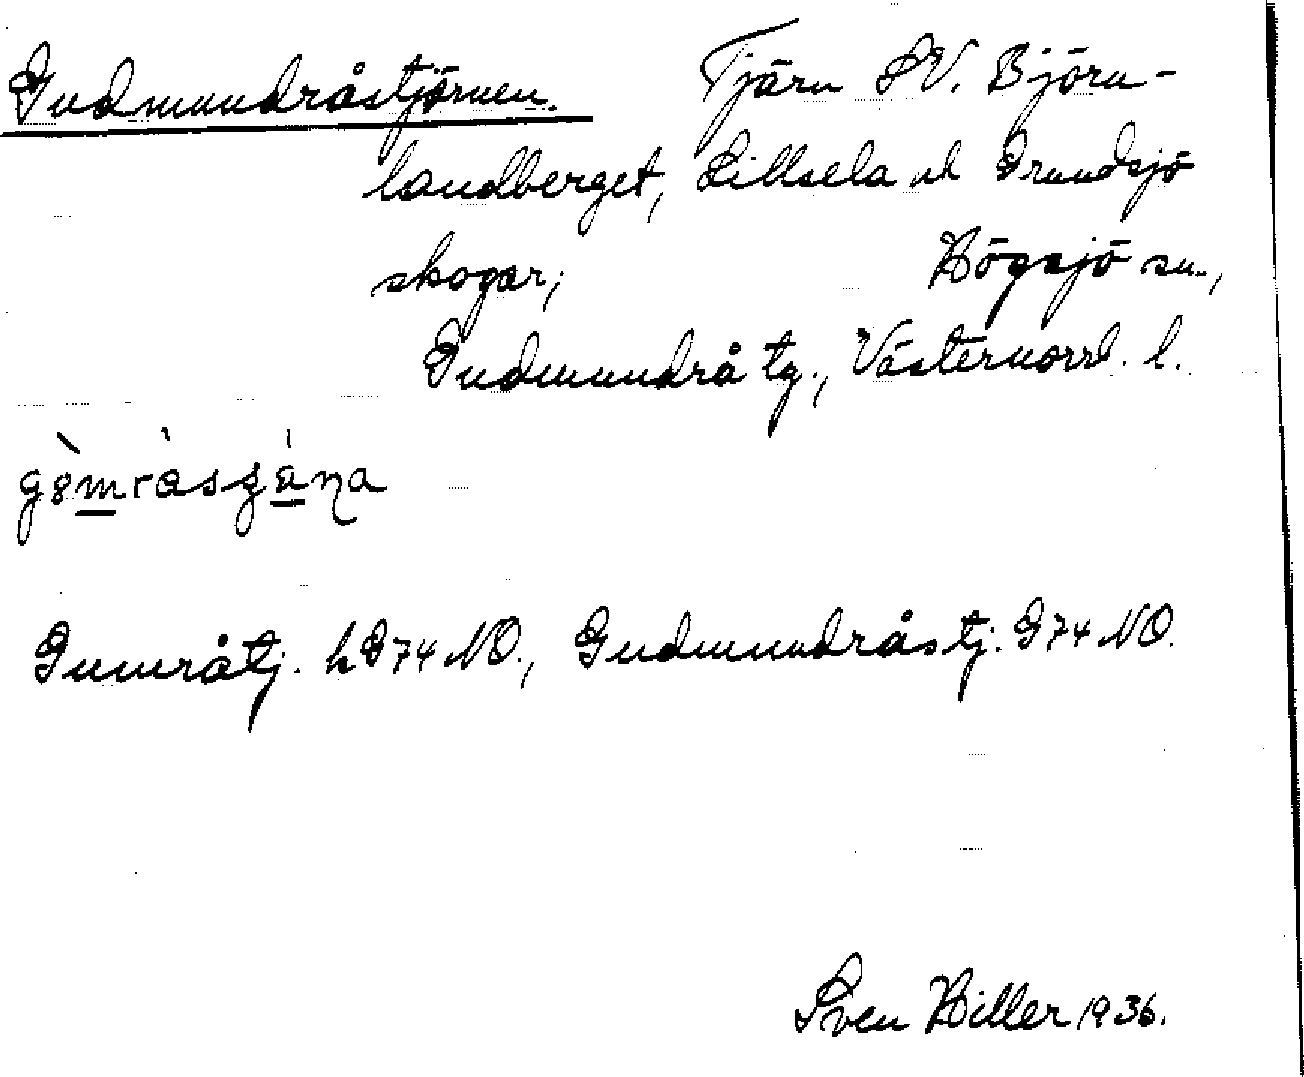 Gudmundråstjärnen. Tjärn SV. Björn-
landberget, Lillsela o
skogar, Högsjö sn.,
Gudmundrå tg., Västernorrl. l.
Gumråtj. h G74 NO., Gudmundråstj. G74 NO.
Sven Hiller 1936.